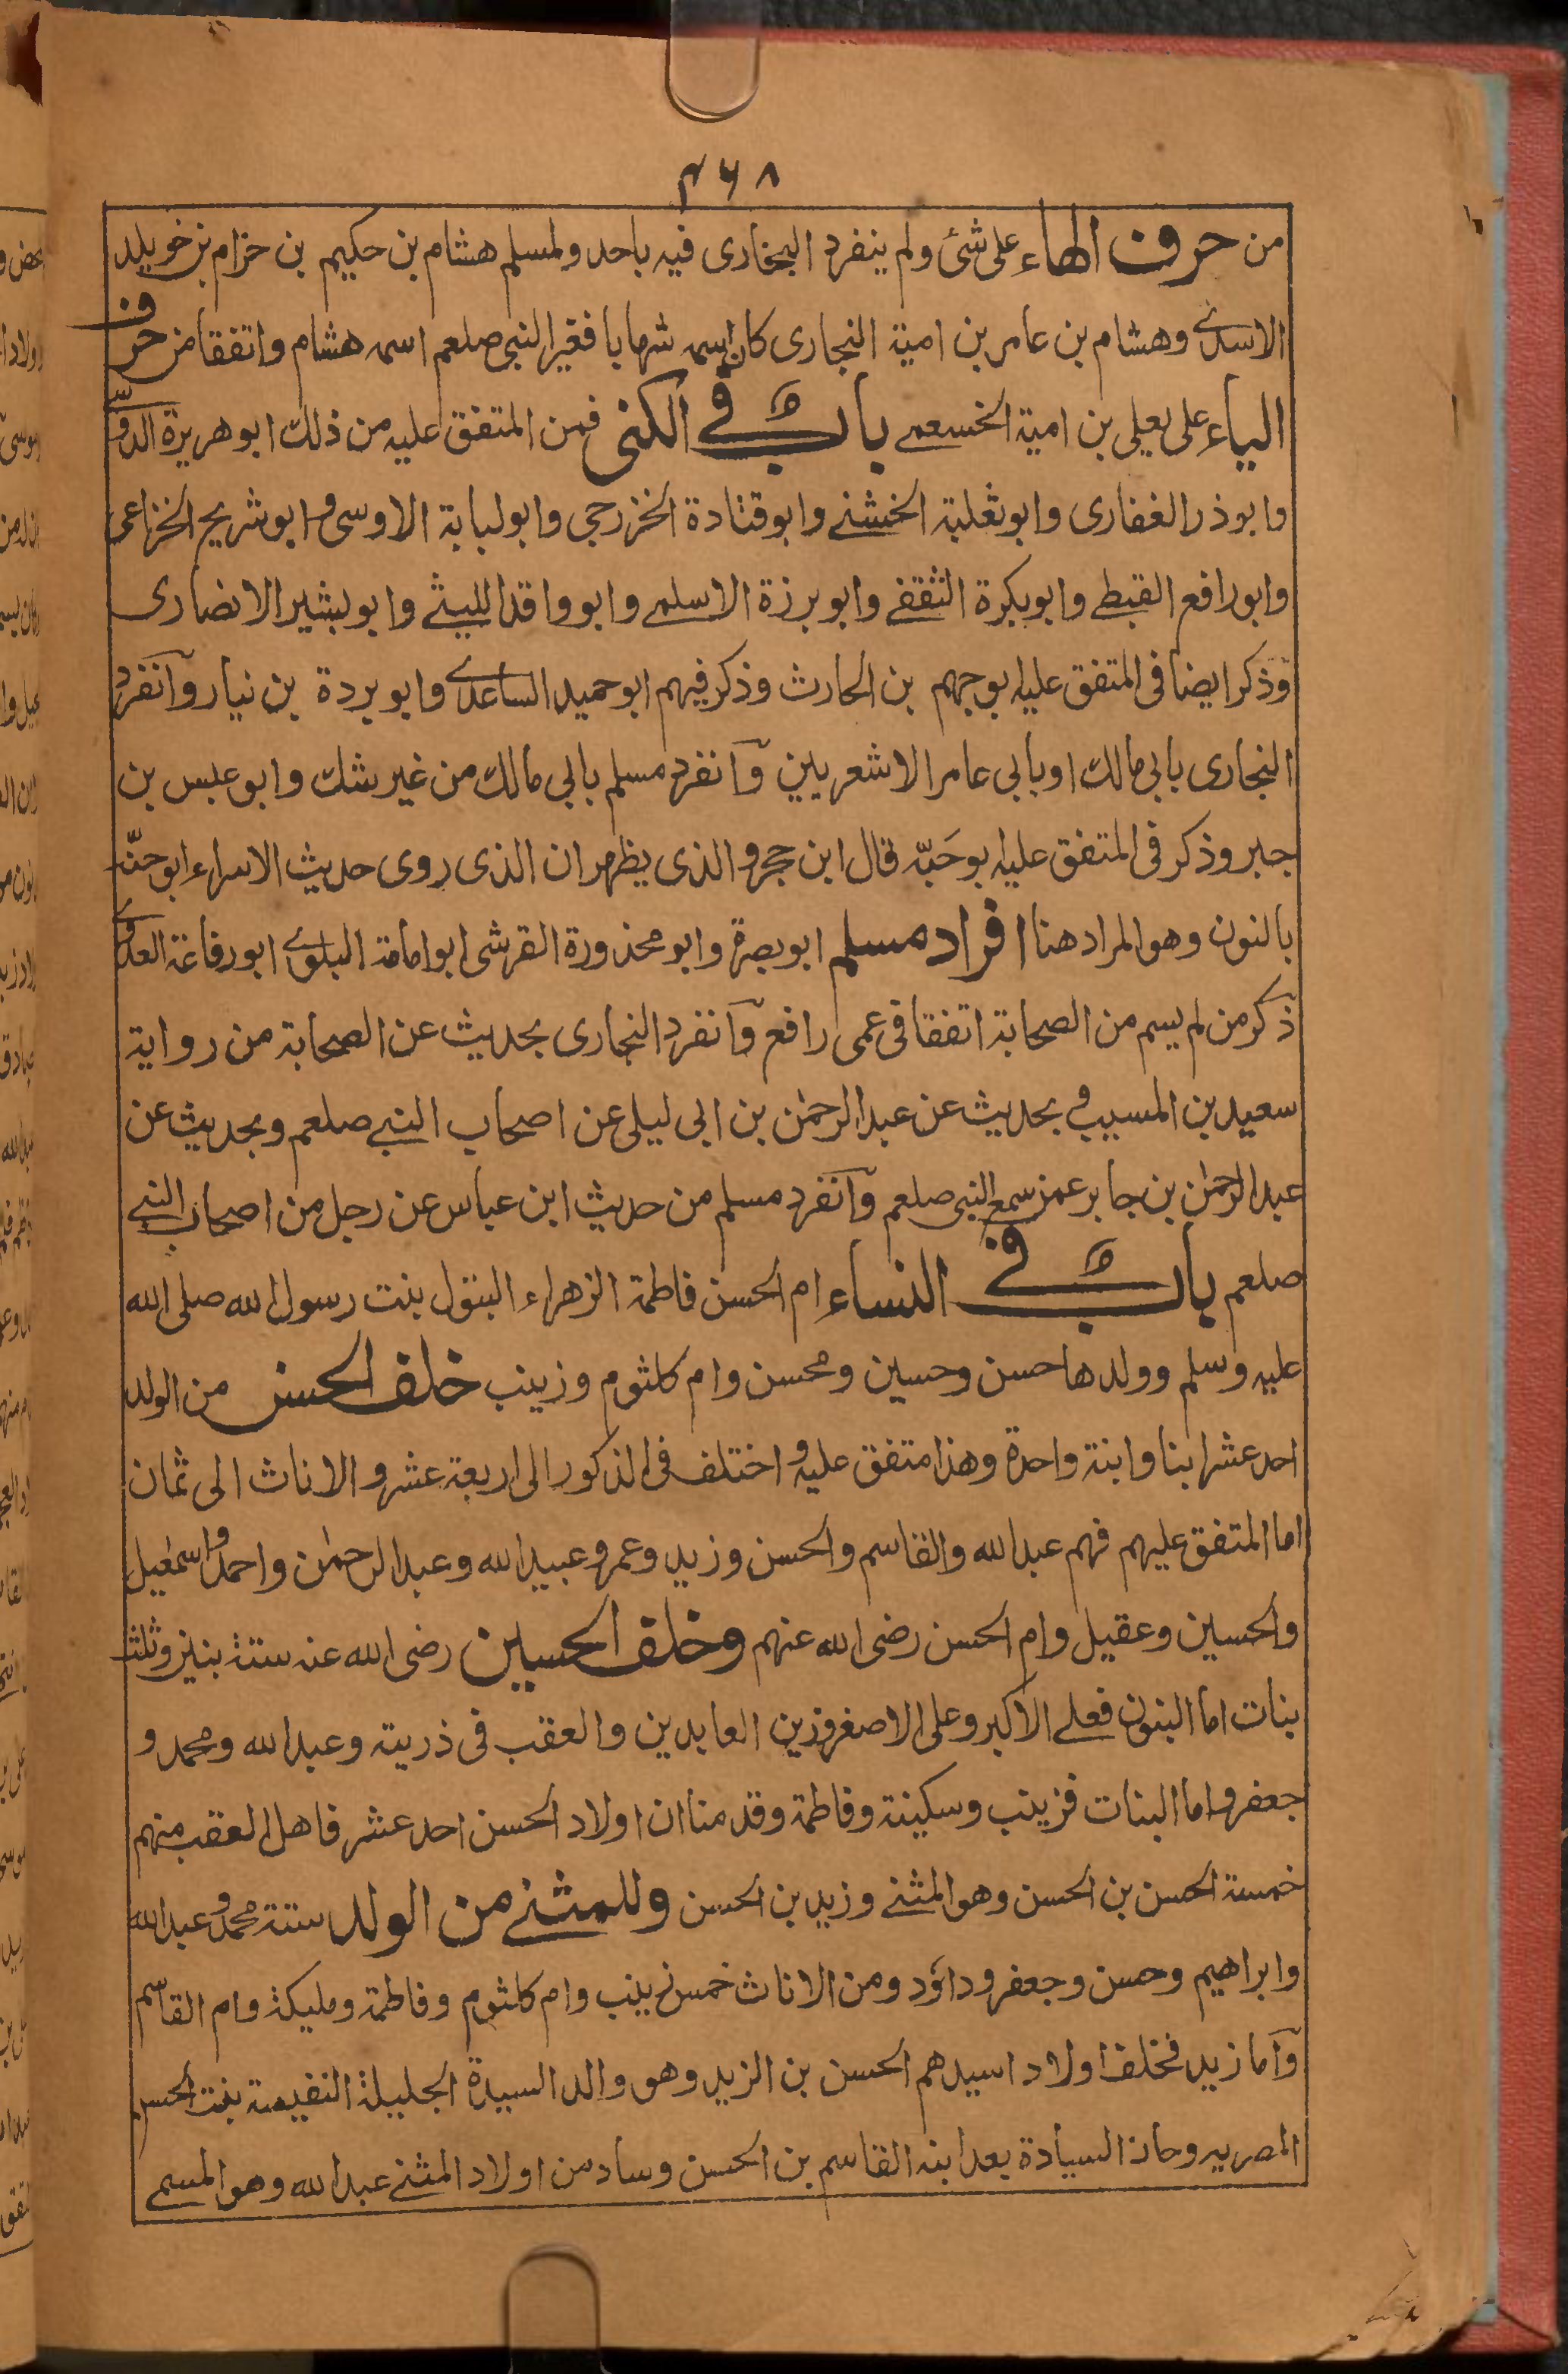 ٣٦٨
من حرف الهاء على شئ ولم ينفرد البخارى فيه باحد ولمسلم هشام بن حكيم بن حزام بن خويلد
الاسدى وهشام بن عامر بن امية النجارى كان اسمه شهابا فغير النبى صلعم اسمه هشام واتفقا من حرف
الياء على يعلى بن امية الخسعمى باب فى الكنى فمن المتفق عليه من ذلك ابو هريرة الدوسى
وابو ذر الغفارى وابو ثعلبة الخشنى وابو قتادة الخزرجى وابو لبابة الاوسى وابو شريح الخزاعى
وابو رافع القبطى وابو بكرة الثقفى وابو برزة الاسلمى وابو واقد الليثى وابو لبشير الانصارى
وذكر ايضا فى المتفق عليه ابو جهم بن الحارث وذكر فيهم ابو حميد الساعدى وابو بردة بن نيار وانفرد
البخارى بابى مالك او بابى عامر الاشعريين وانفرد مسلم بابى مالك من غير شك وابو عبس بن
جبر وذكر فى المتفق عليه ابو حَبّه قال ابن حجر والذى يظهر ان الذى روى حديث الاسراء ابو حنّه
بالنون وهو المراد هنا افراد مسلم ابو بصرة وابو محذورة القرشى ابو امامة البلوى ابو رفاعة العدوى
ذكر من لم يسم من الصحابة اتفقا فى عمى رافع وانفرد البخارى بحديث عن الصحابة من رواية
سعيد بن المسيب و بحديث عن عبد الرحمٰن بن ابى ليلى عن اصحاب النبى صلعم وبحديث عن
عبد الرحمٰن بن جابر عمن سمع النبى صلعم وانفرد مسلم من حديث ابن عباس عن رجل من اصحاب النبى
صلعم باب فى النساء ام الحسن فاطمة الزهراء البتول بنت رسول الله صلى الله
عليه وسلم وولدها حسن وحسين ومحسن وام كلثوم وزينب خلف الحسن من الولد
احد عشر ابنا وابنة واحدة وهذا متفق عليه واختلف فى الذكور الى اربعة عشر والاناث الى ثمان
اما المتفق عليهم فهم عبد الله والقاسم والحسن وزيد وعمرو عبيد الله وعبد الرحمٰن واحمد واسمٰعيل
والحسين وعقيل وام الحسن رضى الله عنهم وخلف الحسين رضى الله عنه ستة بنين وثلث
بنات اما البنون فعلى الاكبر وعلى الاصغر وزين العابدين والعقب فى ذريته وعبد الله ومحمد و
جعفر واما البنات فزينب وسكينة وفاطمة وقدمنا ان اولاد الحسن احد عشر فاهل العقب منهم
خمسة الحسن بن الحسن وهو المثنى وزيد بن الحسن وللمثنى من الولد ستة محمد وعبد الله
وابراهيم وحسن وجعفر وداؤد ومن الاناث خمس زينب وام كلثوم وفاطمة ومليكة وام القاسم
واما زيد فخلف اولاد اسيدهم الحسن بن الزيد وهو والد السيدة الجليلة النفيسة بنت الحسن
المصريه وحاذ السيادة بعد ابنه القاسم بن الحسن وساد من اولاد المثنى عبد الله وهو المسمى